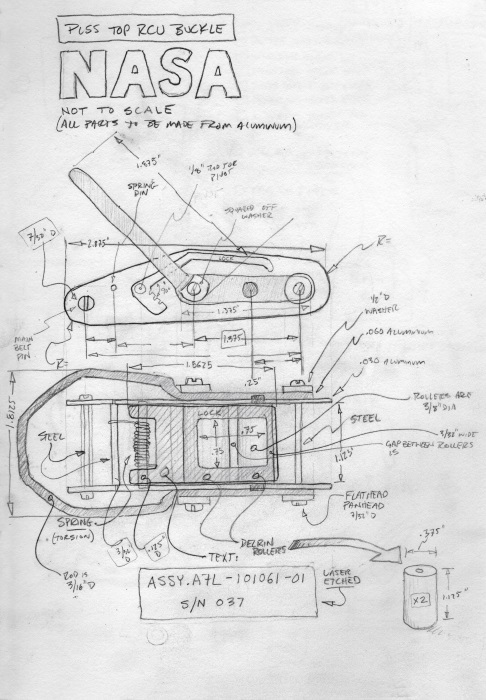 PLSS TOP RCU BUCKLE
NASA
NOT TO SCALE
(ALL PARTS TO BE MADE FROM ALUMINUM)
1.875"
1/8" ROD FOR
PIVOT
SPRING
PIN
SQUARED OFF
WASHER
7/32" D
2.875"
R=
LOCK
1.375"
MAIN
BELT
PIN
1.875"
R=
1.5625
1/2" D
WASHER
.060 ALUMINUM
.030 ALUMINUM
.25"
1.8125
ROLLERS ARE
3/8" DIA
LOCK
STEEL
.75
.75
STEEL
3/32" WIDE
GAP BETWEEN ROLLERS
IS
1.125"
SPRING
(TORSION)
3/16" D
.125" D
FLATHEAD
PANHEAD
7/32" D
DELRIN
ROLLERS
TEXT:
ROD IS
3/16" D
ASSY. A7L-101061-01
S/N 037
LASER
ETCHED
.375"
X2
1.125"